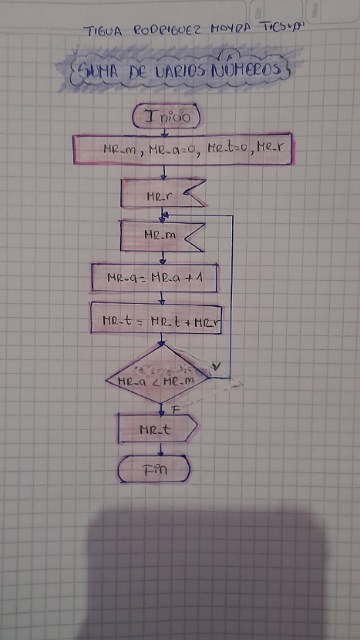 TIGUA RODRIGUEZ MAYRA
SUMA DE VARIOS NÚMEROS
Inicio
MR_m, MR_a=0, MR_t=0, MR_r
MR_r
MR_m
MR_a = MR_a + 1
MR_t = MR_t + MR_r
V
MR_a < MR_m
F
MR_t
Fin